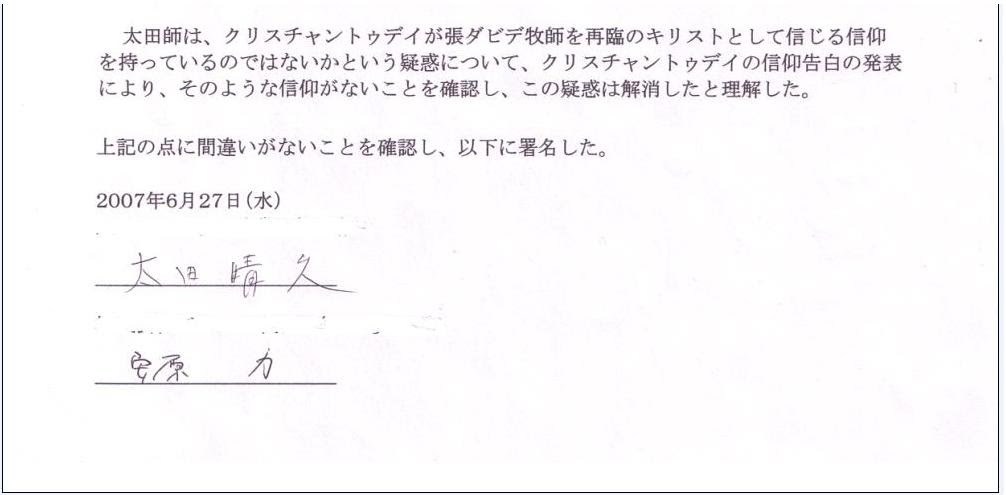 太田師は、クリスチャントゥデイが張ダビデ牧師を再臨のキリストとして信じる信仰
を持っているのではないかという疑惑について、クリスチャントゥデイの信仰告白の発表
により、そのような信仰がないことを確認し、この疑惑は解消したと理解した。
上記の点に間違いがないことを確認し、以下に署名した。
2007年6月27日(水)
太田 晴久
安原 力